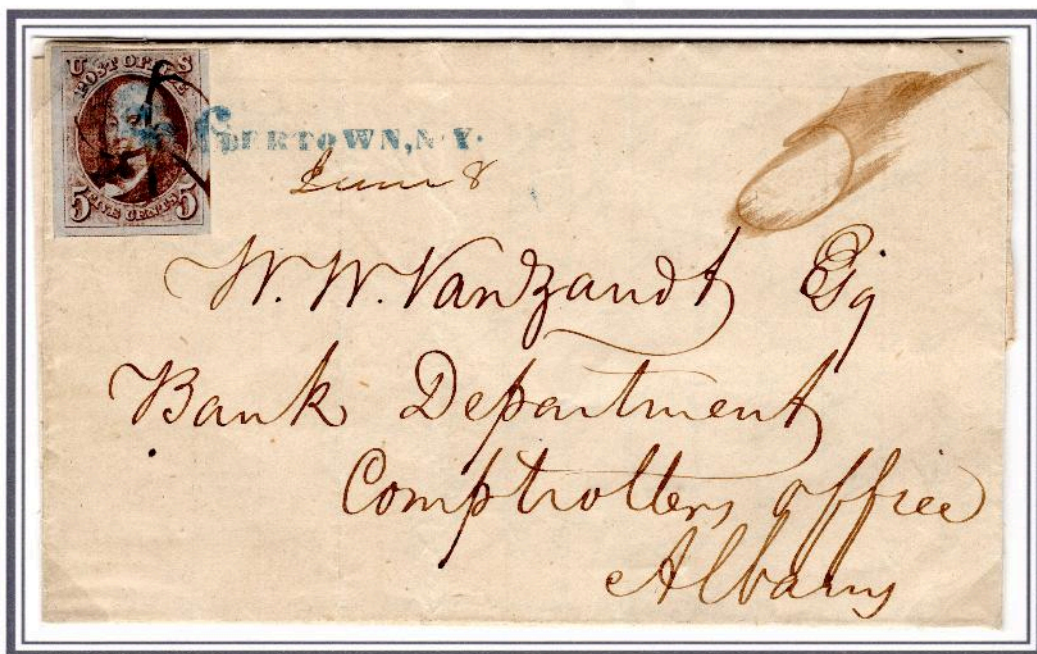 U S
POST OFFICE
5 FIVE CENTS 5
DERTOWN, N.Y.
June 8
W. W. Vanzandt Esq
Bank Department
Comptrollers office
Albany